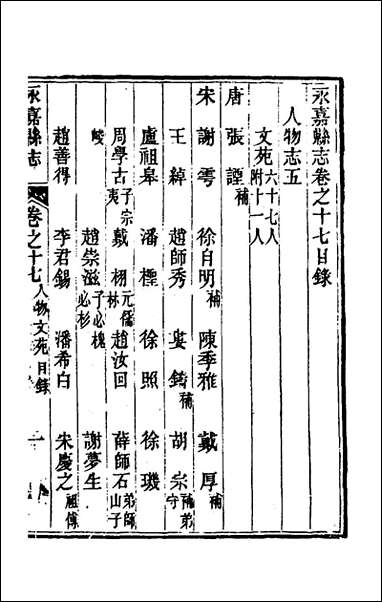 永嘉縣志卷之十七目錄
人物志五
文苑 六十七人 附十一人
唐 張諲 補
宋 謝雩 徐自明 補 陳季雅 戴厚 補
王綽 趙師秀 婁鑄 補 胡宗 補弟守
盧祖皋 潘檉 徐照 徐璣
周學古 子宗夷 戴栩 元儒林 趙汝回 薛師石 弟師山子
峻 趙崇滋 子必槐必杉 謝夢生
趙善得 李君錫 潘希白 朱慶之 祖傅
永嘉縣志 卷之十七 人物 文苑 目錄 一